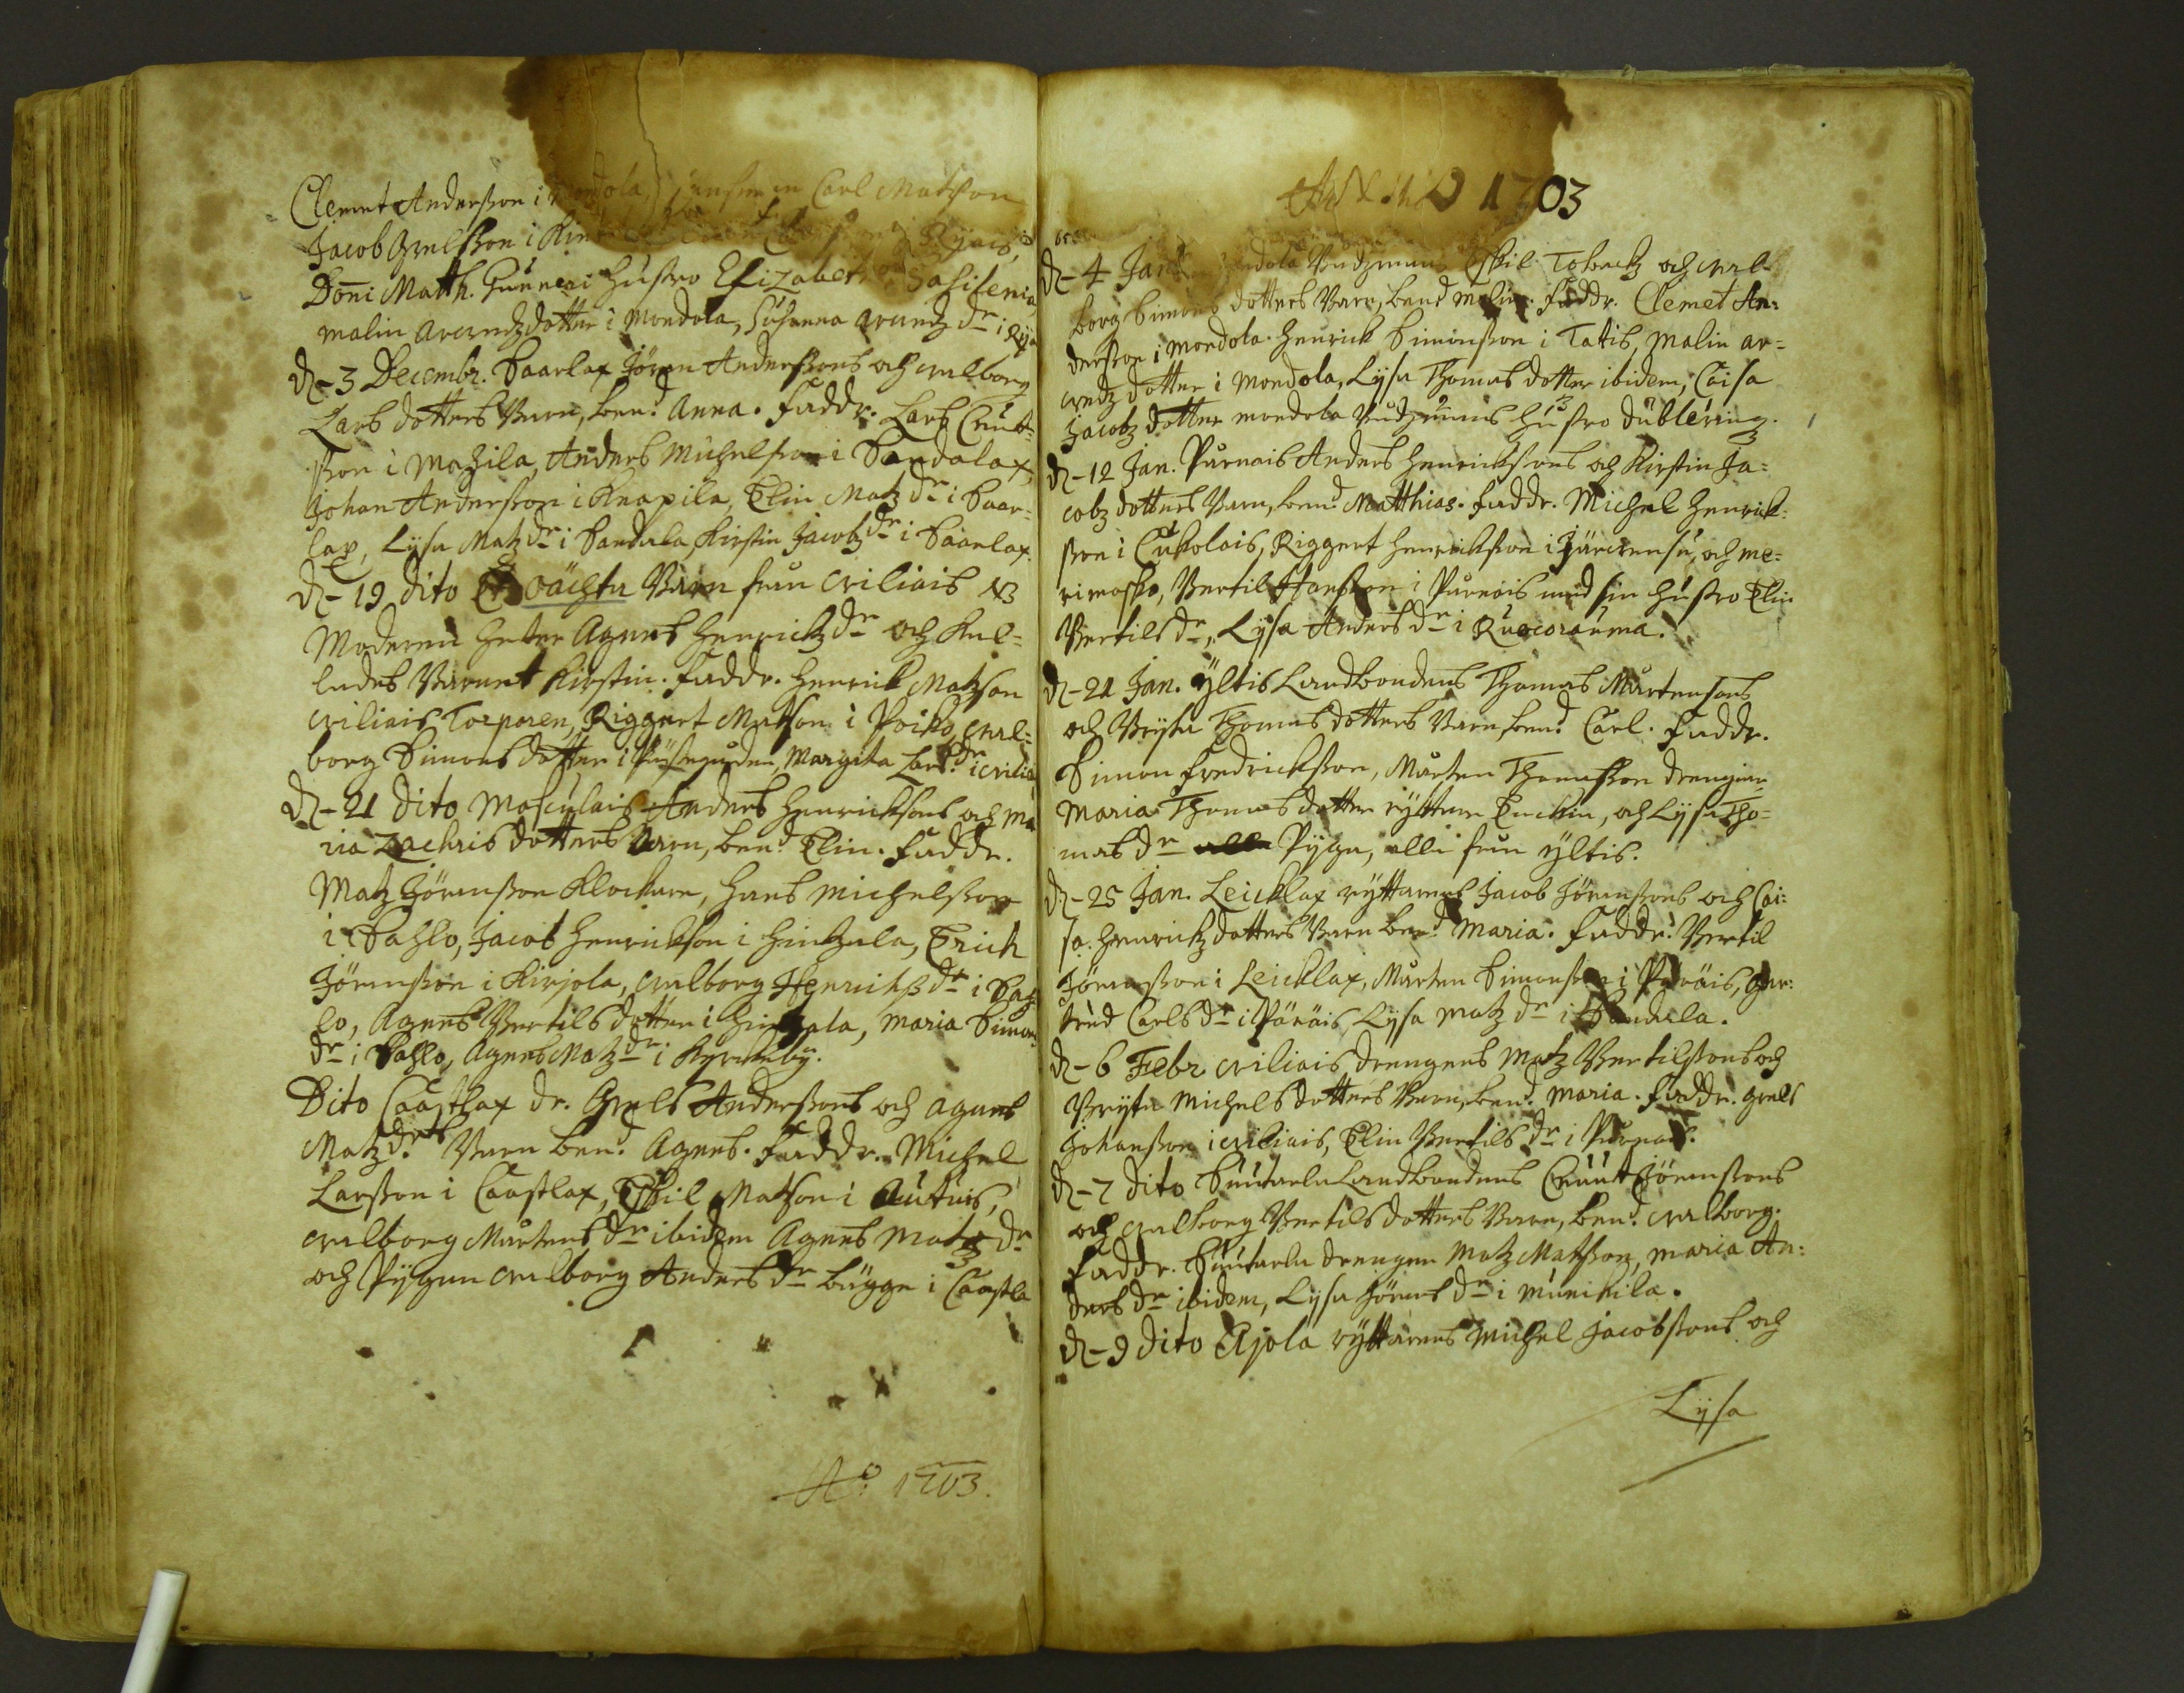 Clemet Anderßon i Mondola, Carl Matßon
Jacob Grelßon i
Doni Matth. Gunneri hustro Elizabeth Sahlenia,
Malin Arendz dotter i Mondola, Susanna Arendz dr i
d. 3 Decembr. Saarlax Jören Anderßons och Walborg
Lars dotters Barn, bend Anna. Faddr. Lars Cnut-
ßon i Mazila, Anders Michelßon i Sandalax,
Johan Anderßon i Knapila, Elin Matz dr i Saar-
lax, Lysa Matz dr i Sandala, Kirstin Jacobz dr i Saarlax.
d. 19 dito Et oächta Barn frun Wiliais NB
Moderen heter Agnes Henrickz dr och kal-
lades Barnet Kirstin. Faddr. Henrick Matzson
Wiliais Torparen, Riggert Matßon i Poiko, Wal-
borg Simons dotter i Prästgården, Margita Lars dr i Wiliais
d. 21 dito Masculais Anders Henricksons och Ma
ria Zachris dotters Barn, bend Elin. Faddr.
Matz Jörenßon Klockare, Hans Michelßon
i Sahlo, Jacob Henrickson i Hintzala, Erich
Jörenßon i Kirjola, Walborg Henrichß dr i Sah
lo, Agnes Bertils dotter i Hintzala, Maria Simons
dr i Sahlo, Agnes Matz dr i Kyrckeby.
Dito Caastlax dr. Grels Anderßons och Agnes
Matz drs Barn bend Agnes. Faddr. Michel
Larßon i Caastlax, Eskil Matßon i Autuis,
Walborg Mårtens dr ibidem Agnes Matz dr
och Pygan Walborg Anders dr Bügge i Caastla
Ao 1703.
1703
d. 4 Jan. Mondola Eskil Tobackz och Wal-
borg Simons dotters Barn, bend Malin. Faddr. Clemet An=
derßon i Mondola. Henrick Simonßon i Tatis, Malin Ar=
endz dotter i Mondola, Lysa Thomas dotter ibidem, Caisa
Jacobz dotter Mondola hustro
d. 12 Jan. Purnois Anders Henrickßons och Kirstin Ja=
cobz dotters Barn, bend Matthias. Faddr. Michel Henrick-
ßon i Cukolais, Riggert Henrickßon i Järwensu, och Me=
rimasko, Bertil Hanßon i Purnois med sin hustro Elin
Bertils dr, Lysa Anders dr i Ruocorauma.
d. 21 Jan. Yltis Landbondens Thomas Mårtensons
och Bryta Thomas dotters Barn, bend Carl. Faddr.
Simon Fredrickßon, Mårten Thomßon drengiar
Maria Thomas dotter ryttare Enckia, och Lysa Tho=
mas dr Pyga, alla frun Yltis.
d. 25 Jan. Leicklax ryttarens Jacob Jörenßons och Cai=
sa Henrickz dotters Barn bend Maria. Faddr. Bertil
Jörenßon i Leicklax, Mårten Simonßon i Päräis, Ger=
trud Carls dr i Päräis, Lysa Matz dr i Sandala.
d. 6 Febr Wiliais drengens Matz Bertilßons och
Bryta Michels dotters Barn, bend. Maria. Faddr. Grels
Johanßon i Wiliais, Elin Bertils dr i Purnois.
d. 7 dito Suutarla Landbondens Cnuut Jörenßons
och Walborg Bertils dotters Barn, bend. Walborg.
Faddr. Suutarla drengen Matz Matßon, Maria An=
ders dr ibidem, Lysa Jörens dr i Munikila.
d. 9 dito Ajola ryttarens Michel Jacobßons och
Lysa